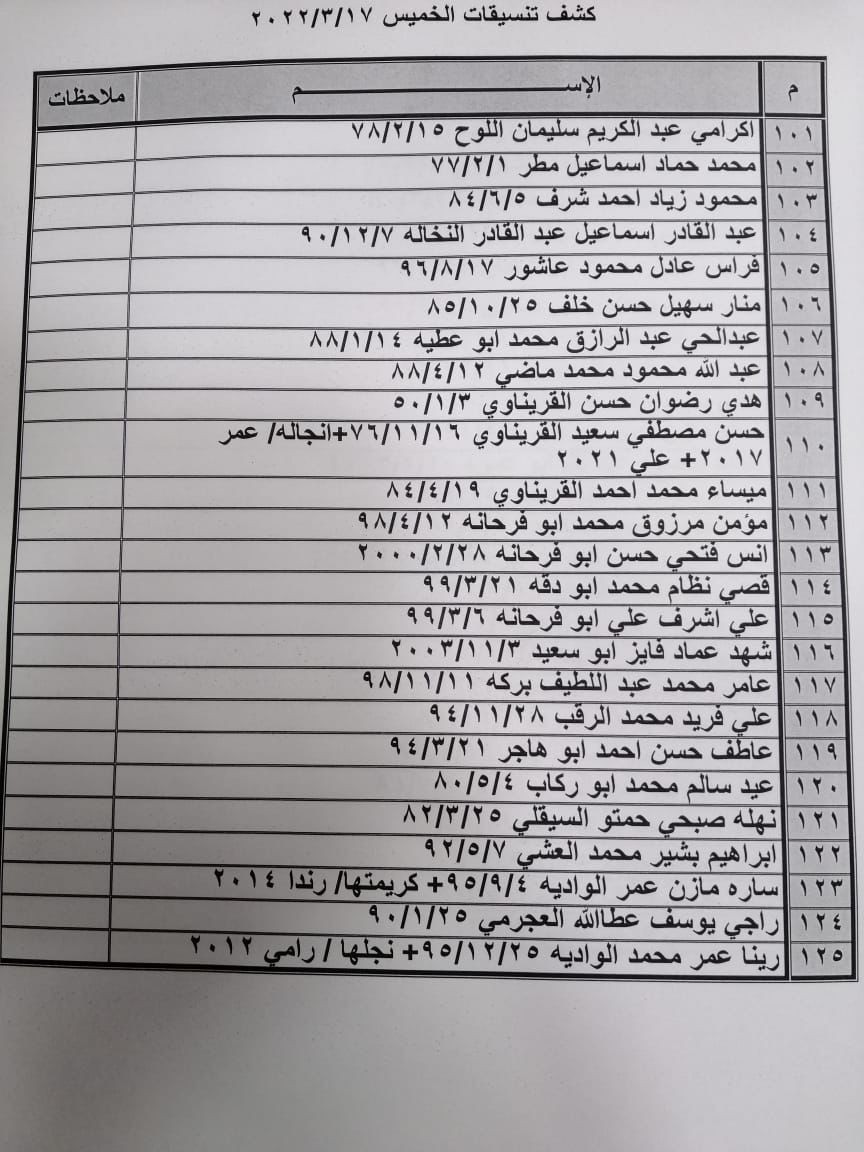 كشف تنسيقات الخميس ٢٠٢٢/٣/١٧
م الإســـــــــــــم ملاحظات
١٠١ اكرامي عبد الكريم سليمان اللوح ٧٨/٢/١٥
١٠٢ محمد حماد اسماعيل مطر ٧٧/٢/١
١٠٣ محمود زياد احمد شرف ٨٤/٦/٥
١٠٤ عبد القادر اسماعيل عبد القادر النخاله ٩٠/١٢/٧
١٠٥ فراس عادل محمود عاشور ٩٦/٨/١٧
١٠٦ منار سهيل حسن خلف ٨٥/١٠/٢٥
١٠٧ عبدالحي عبد الرازق محمد ابو عطيه ٨٨/١/١٤
١٠٨ عبد الله محمود محمد ماضي ٨٨/٤/١٢
١٠٩ هدي رضوان حسن القريناوي ٥٠/١/٣
١١٠ حسن مصطفي سعيد القريناوي ٧٦/١١/١٦+انجاله/ عمر
٢٠١٧+ علي ٢٠٢١
١١١ ميساء محمد احمد القريناوي ٨٤/٤/١٩
١١٢ مؤمن مرزوق محمد ابو فرحانه ٩٨/٤/١٢
١١٣ انس فتحي حسن ابو فرحانه ٢٠٠٠/٢/٢٨
١١٤ قصي نظام محمد ابو دقه ٩٩/٣/٢١
١١٥ علي اشرف علي ابو فرحانه ٩٩/٣/٦
١١٦ شهد عماد فايز ابو سعيد ٢٠٠٣/١١/٣
١١٧ عامر محمد عبد اللطيف بركه ٩٨/١١/١١
١١٨ علي فريد محمد الرقب ٩٤/١١/٢٨
١١٩ عاطف حسن احمد ابو هاجر ٩٤/٣/٢١
١٢٠ عيد سالم محمد ابو ركاب ٨٠/٥/٤
١٢١ نهله صبحي حمتو السيقلي ٨٢/٣/٢٥
١٢٢ ابراهيم بشير محمد العشي ٩٢/٥/٧
١٢٣ ساره مازن عمر الواديه ٩٥/٩/٤+ كريمتها/ رندا ٢٠١٤
١٢٤ راجي يوسف عطاالله العجرمي ٩٠/١/٢٥
١٢٥ رينا عمر محمد الواديه ٩٥/١٢/٢٥+ نجلها / رامي ٢٠١٢